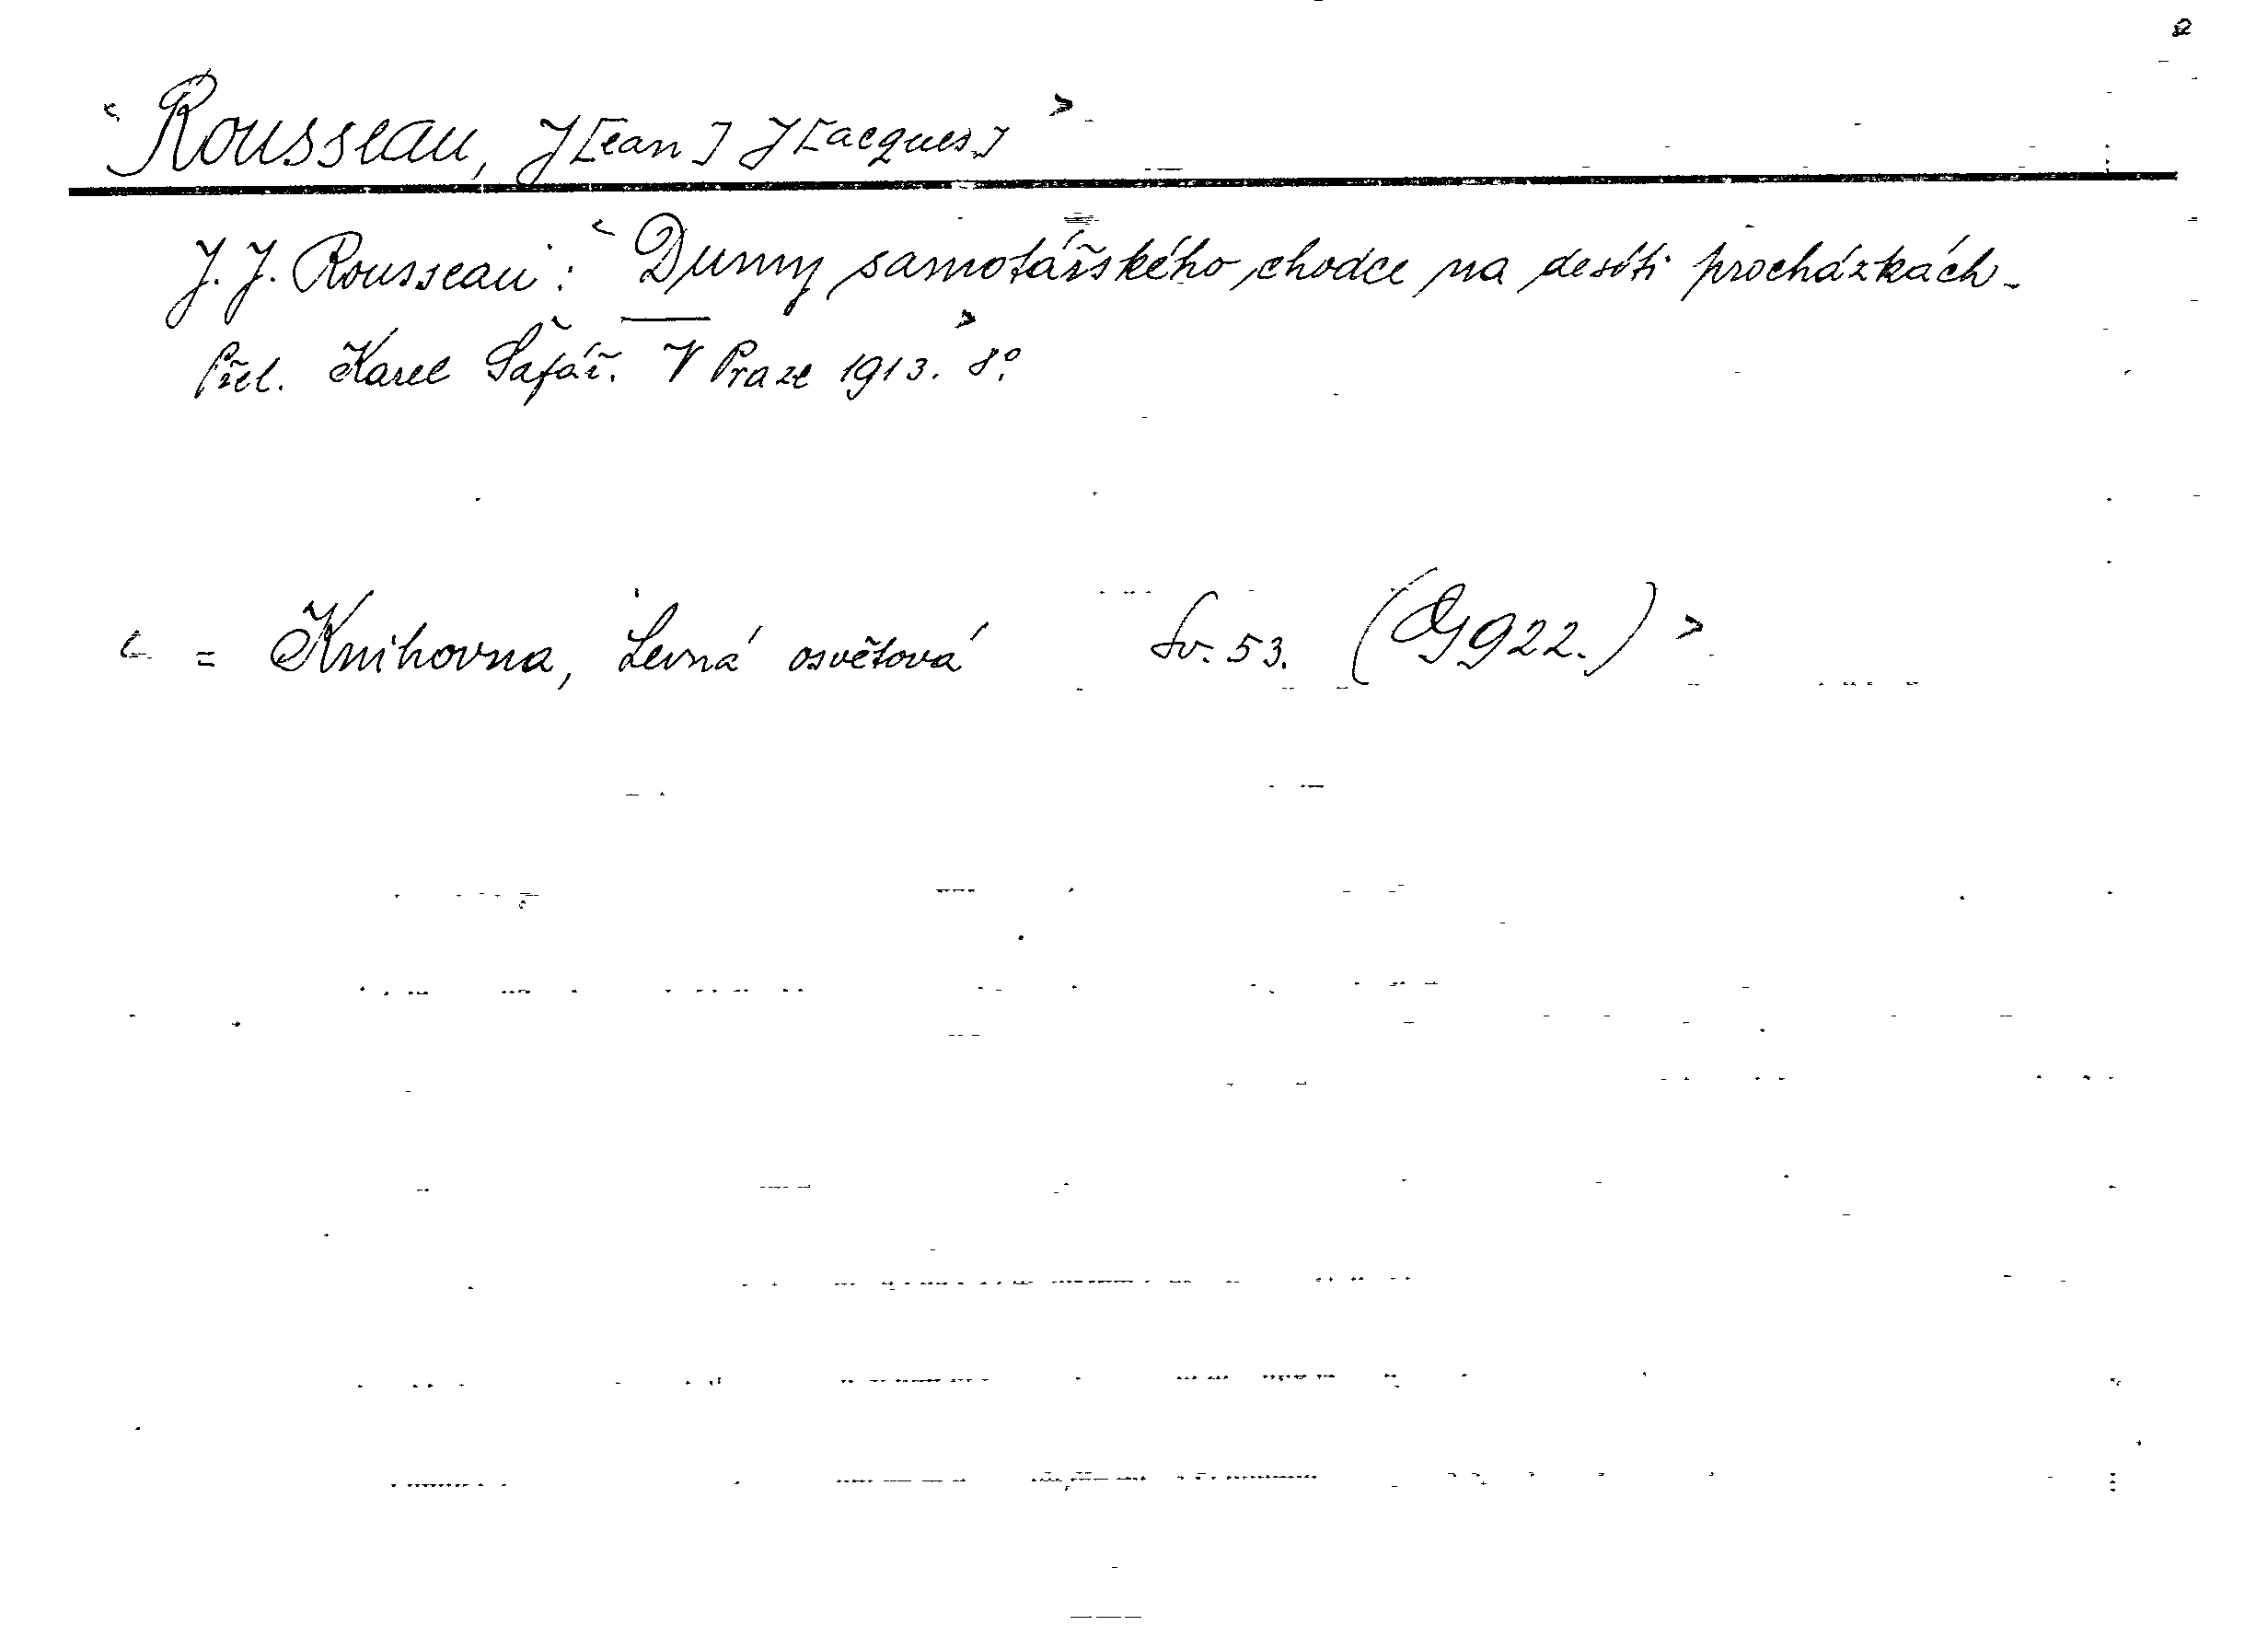 < Rousseau, J[ean] J[acques] >
J. J. Rousseau: < Dumy samotářského chodce na desíti procházkách.
Přel. Karel Šafář. V Praze 1913. > 8°.
< = Knihovna, Levná osvětová Sv. 53. (G 922.) >